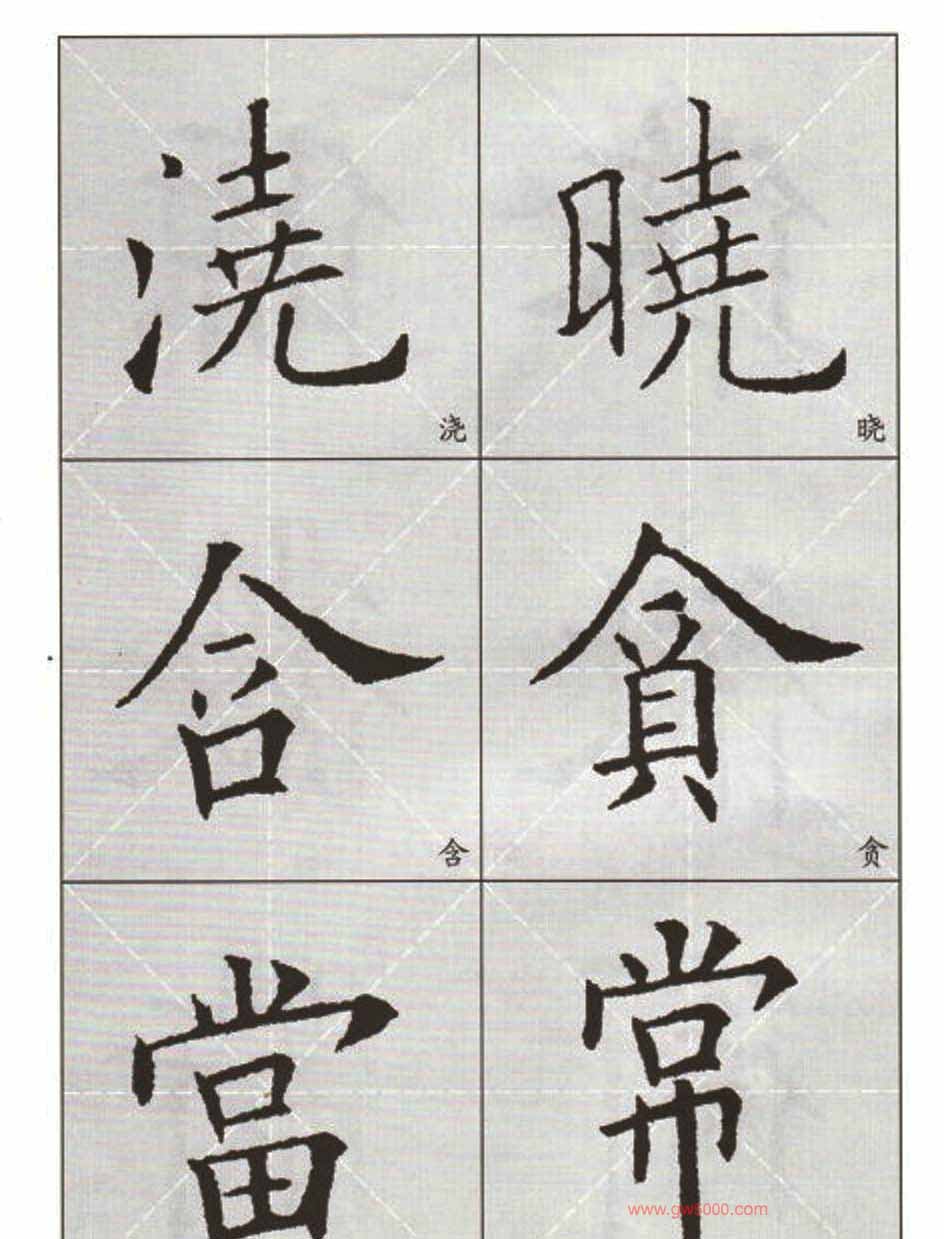 澆 曉
浇 晓
含 貪
含 贪
當 常
www.gw5000.com